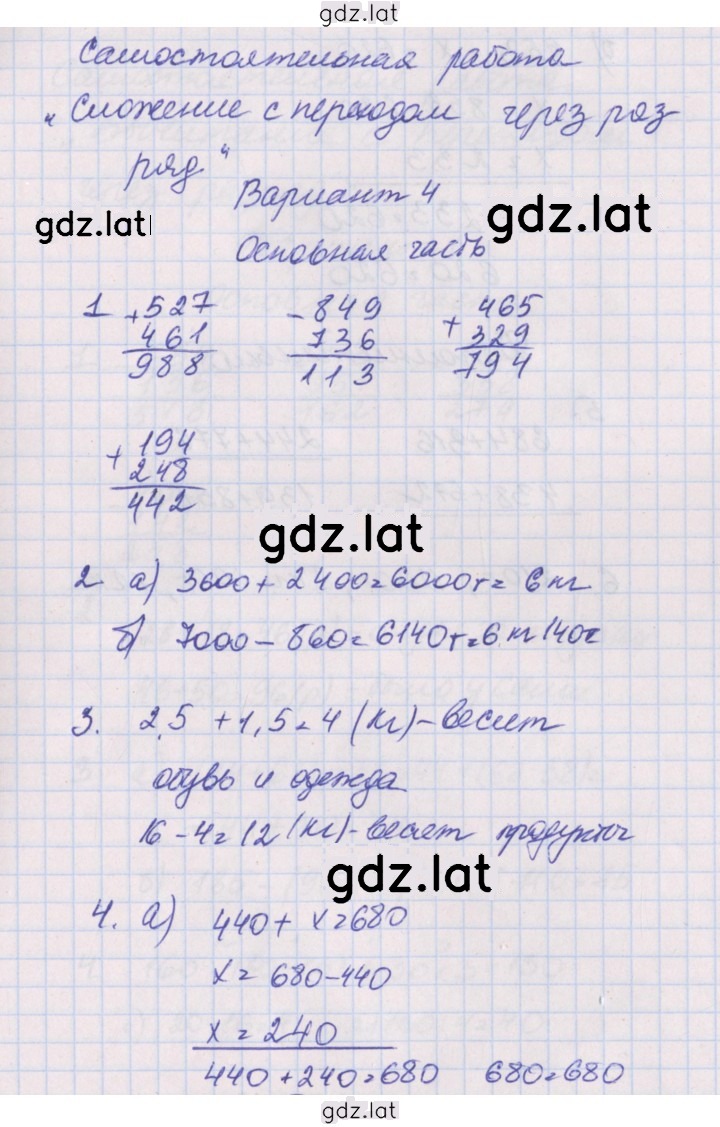 gdz.lat
Самостоятельная работа
„Сложение с переходом через раз-
ряд"
Вариант 4
gdz.lat
gdz.lat
Основная часть
1 +527 -849 +465
461 736 329
988 113 794
+194
248
442
gdz.lat
2 а) 3600 + 2400 = 6000г = 6 кг
б) 7000 - 860 = 6140г = 6 кг 140г
3. 2,5 + 1,5 = 4 (кг) - весит
обувь и одежда
16 - 4 = 12 (кг) - весят продукты
gdz.lat
4. а) 440 + x = 680
x = 680 - 440
x = 240
440 + 240 = 680 680 = 680
gdz.lat